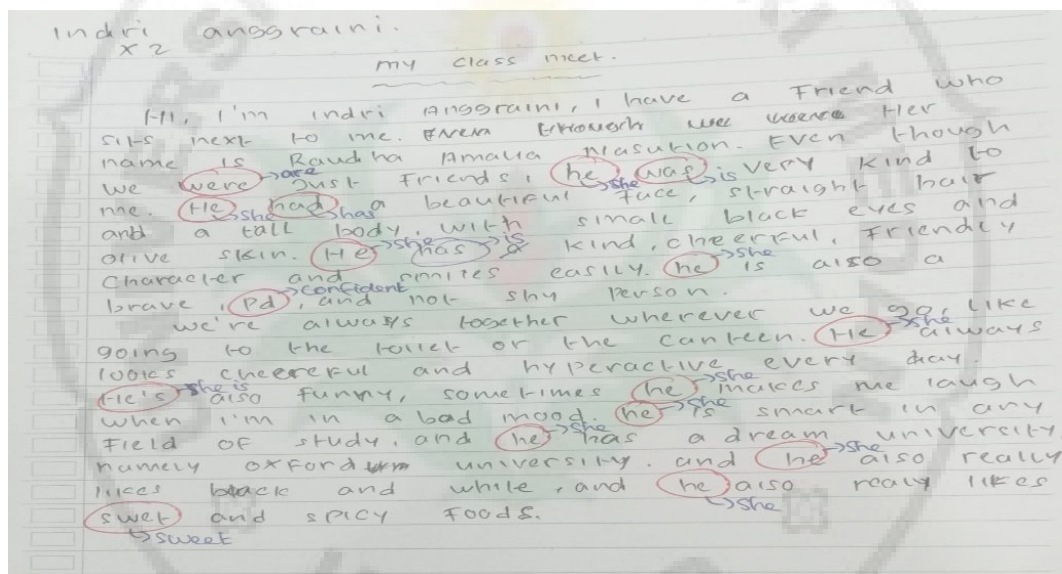 Indri anggraini.
X 2
my class meet.
Hi, I'm indri Anggraini, I have a Friend who
sits next to me. Her
name is Raudiha Amalia Nasution. Even though
we were →are just friends, he →she was →is very kind to
me. He →she had →has a beautiful face, straight hair
and a tall body, with small black eyes and
olive skin. He →she has →is a kind, cheerful, Friendly
character and smiles easily. he →she is also a
brave, Pd →confident, and not shy person.
we're always together wherever we go, like
going to the toilet or the canteen. He →she always
looks cheereful and hyperactive every day.
He's →she is also funny, sometimes he →she makes me laugh
when I'm in a bad mood. he →she is smart in any
Field of study, and he →she has a dream university
namely oxford university. and he →she also really
likes black and while, and he →she also realy likes
swet →sweet and spicy foods.